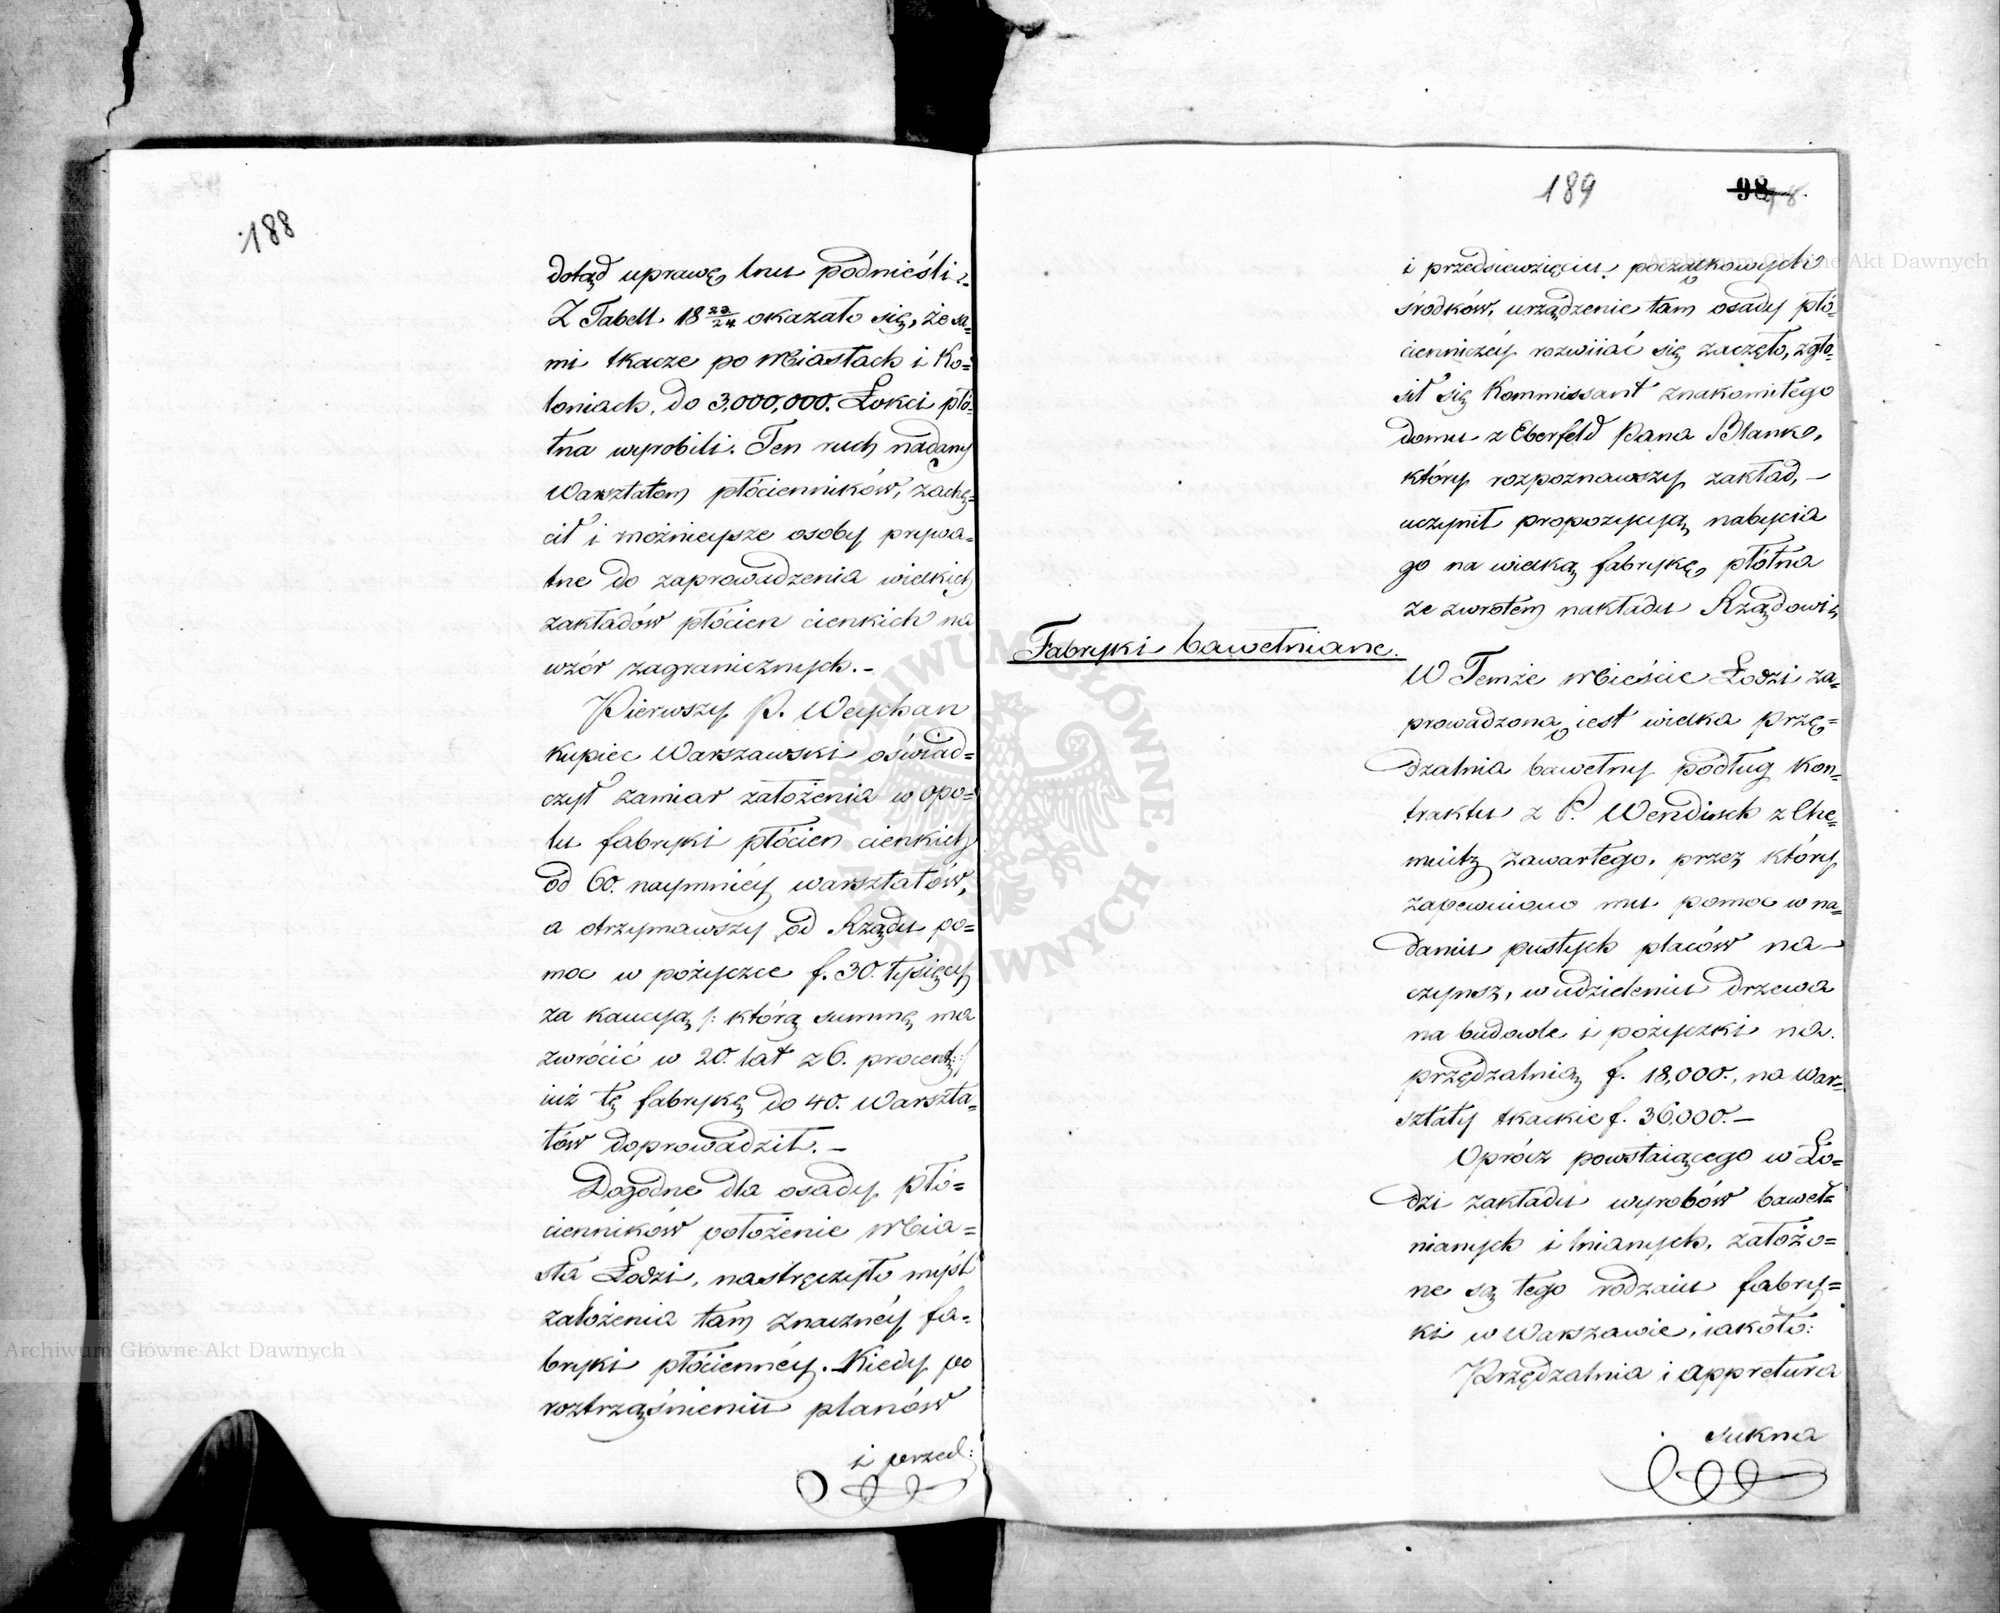 188
dotąd uprawę lnu podnieśli.
Z Tabell 18 23/24 okazało się, że sa=
mi tkacze po Miastach i Ko=
loniach, do 3,000,000. Łokci płó=
tna wyrobili. Ten ruch nadany
Warsztatom płócienników, zachę=
cił i możnieysze osoby prywa=
tne do zaprowadzenia wielkich
zakładów płócien cienkich na
wzór zagranicznych. –
Pierwszy P. Weychan
kupiec Warszawski oświad=
czył zamiar założenia w Opo=
lu fabryki płócien cienkich
od 60. naymniéy warsztatów,
a otrzymawszy od Rządu po=
moc w pożyczce f. 30. tysięcy
za kaucyą /: którą summę ma
zwrócić w 20. lat z 6. procent: :/
iuż tę fabrykę do 40. Warszta=
tów doprowadził. –
Dogodne dla osady płó=
cienników położenie Mia=
sta Łodzi, nastręczyło myśl
założenia tam znacznéy fa=
bryki płóciennéy. Kiedy po
roztrząśnieniu planów
i przed:
189
98
98.
i przedsięwzięciu początkowych
środków, urządzenie tam osady płó=
cienniczéy rozwiiać się zaczęło, zgło=
sił się Kommissant znakomitego
domu z Eberfeld Pana Blank,
który rozpoznawszy zakład, –
uczynił propozycyą nabycia
go na wielką fabrykę płótna
ze zwrotem nakładu Rządowi
Fabryki bawełniane.
W Temże Mieście Łodzi za=
prowadzoną iest wielka Przę=
dzalnia bawełny podług Kon=
traktu z P. Wendisch z Che=
mnitz zawartego, przez który
zapewniono mu pomoc w na=
daniu pustych placów na –
czynsz, w udzieleniu drzewa
na budowle i pożyczki na
przędzalnią f. 18,000., na War=
sztaty tkackie f. 36,000. –
Oprócz powstaiącego w Ło=
dzi zakładu wyrobów baweł=
nianych i lnianych, założo=
ne są tego rodzaiu fabry=
ki w Warszawie, iakoto:
Przędzalnia i appretura
sukna
Archiwum Główne Akt Dawnych
Archiwum Główne Akt Dawnych
ARCHIWUM GŁÓWNE AKT DAWNYCH